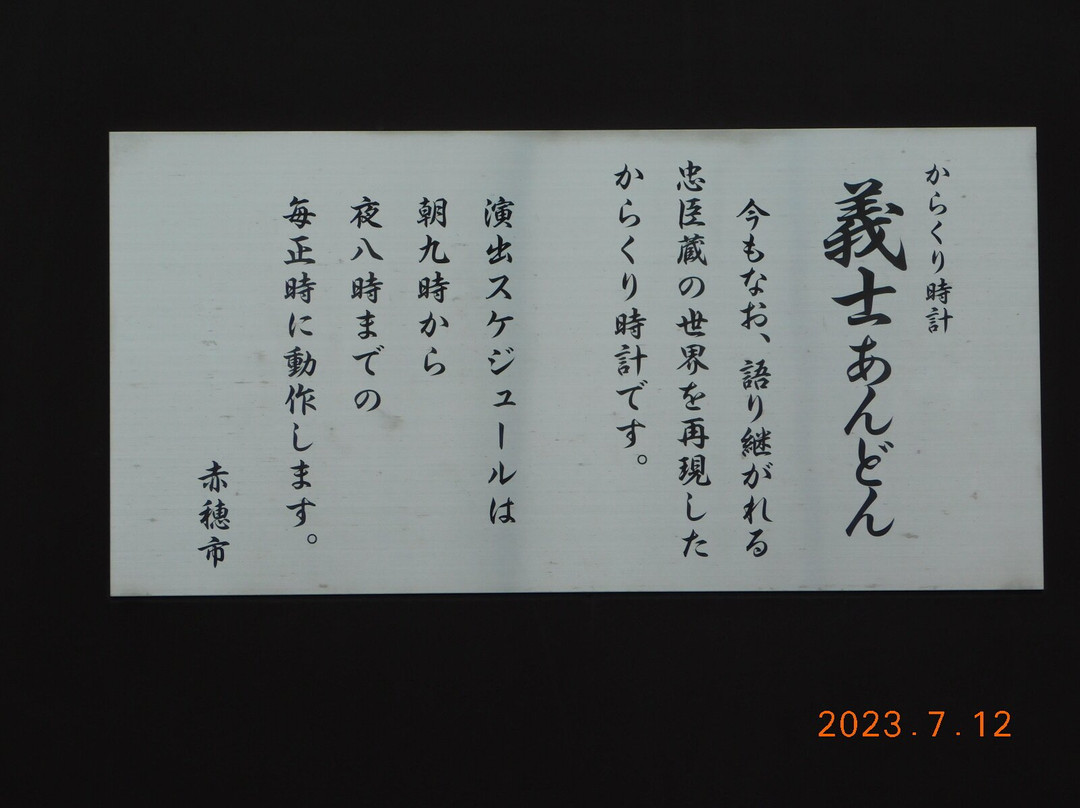 からくり時計
義士あんどん
今もなお、語り継がれる
忠臣蔵の世界を再現した
からくり時計です。
演出スケジュールは
朝九時から
夜八時までの
毎正時に動作します。
赤穂市
2023.7.12